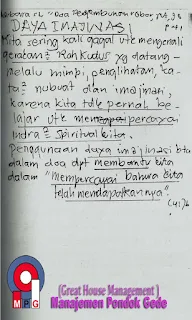 "Doa Pegembunuh"
DAYA IMAJINASI
Kita sering kali gagal utk mengenali
gerakan² Roh Kudus yg datang
melalui mimpi, penglihatan, ka-
ta² nubuat dan imajinasi,
karena kita tdk pernah be-
lajar utk percaya
indra² spiritual kita.
Penggunaan daya imajinasi kita
dalam doa dpt membantu kita
dalam "mempercayai bahwa kita
telah mendapatkannya".
MPG
(Great House Management )
Manajemen Pondok Gede